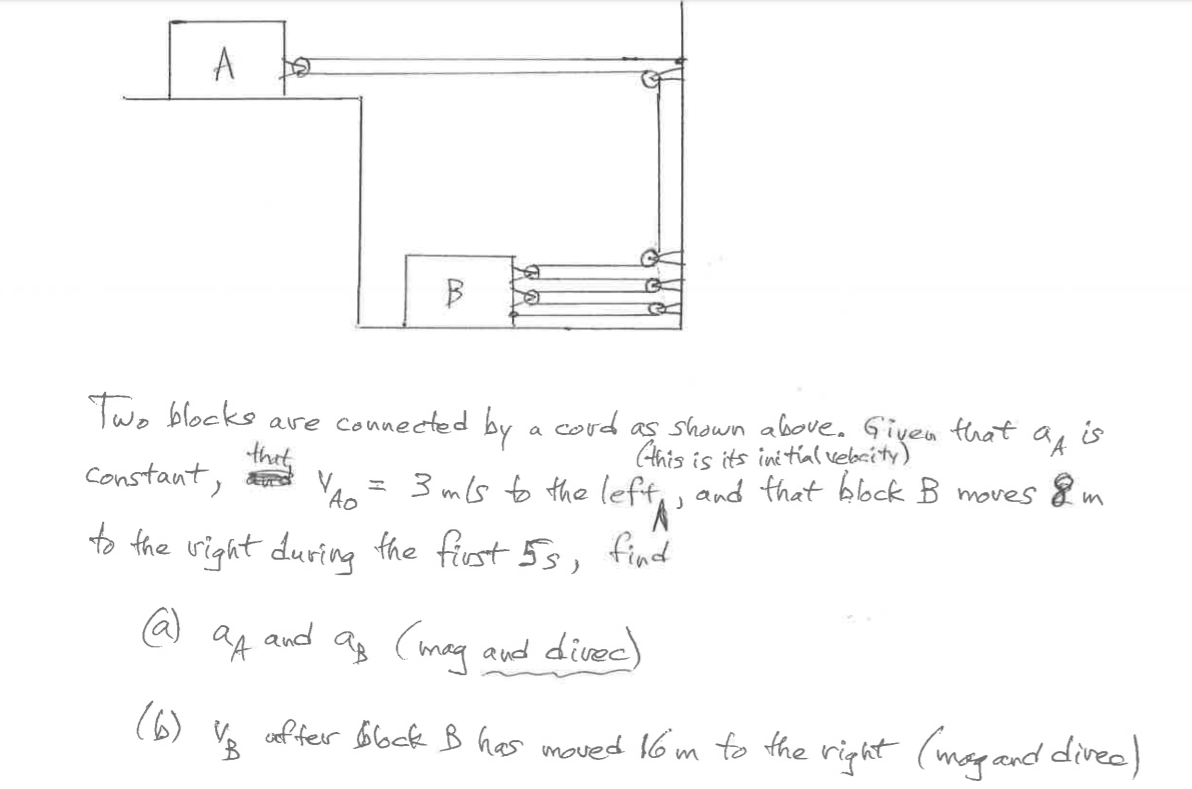 A
B
Two blocks are connected by a cord as shown above. Given that a_A is
constant, that v_A0 = 3 m/s to the left (this is its initial velocity), and that block B moves 8 m
to the right during the first 5s, find
(a) a_A and a_B (mag and direc)
(b) v_B after block B has moved 16 m to the right (mag and direc)